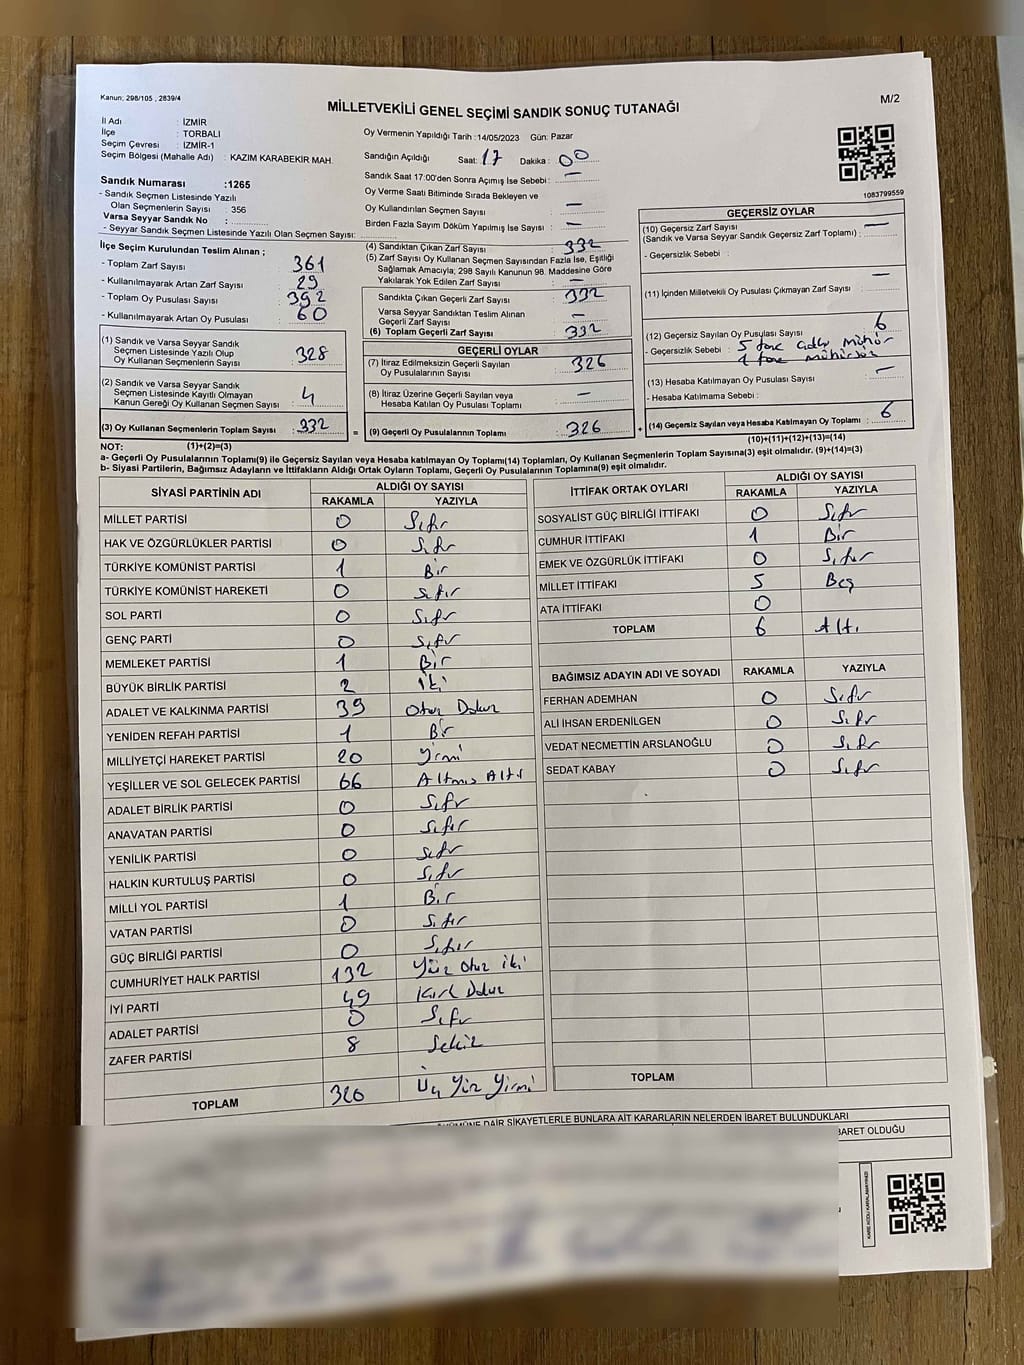 Kanun; 298/105 , 2839/4
MİLLETVEKİLİ GENEL SEÇİMİ SANDIK SONUÇ TUTANAĞI
M/2
İl Adı : İZMİR
İlçe : TORBALI
Seçim Çevresi : İZMİR-1
Seçim Bölgesi (Mahalle Adı) : KAZIM KARABEKİR MAH.
Oy Vermenin Yapıldığı Tarih : 14/05/2023 Gün: Pazar
Sandığın Açıldığı Saat: 17 Dakika: 00
Sandık Saat 17:00'den Sonra Açımış İse Sebebi : —
Oy Verme Saati Bitiminde Sırada Bekleyen ve
Oy Kullandırılan Seçmen Sayısı : —
Birden Fazla Sayım Döküm Yapılmış İse Sayısı : —
1083799559
Sandık Numarası :1265
- Sandık Seçmen Listesinde Yazılı
Olan Seçmenlerin Sayısı : 356
Varsa Seyyar Sandık No :
- Seyyar Sandık Seçmen Listesinde Yazılı Olan Seçmen Sayısı:
İlçe Seçim Kurulundan Teslim Alınan ;
- Toplam Zarf Sayısı : 361
- Kullanılmayarak Artan Zarf Sayısı : 29
- Toplam Oy Pusulası Sayısı : 392
- Kullanılmayarak Artan Oy Pusulası : 60
(1) Sandık ve Varsa Seyyar Sandık
Seçmen Listesinde Yazılı Olup
Oy Kullanan Seçmenlerin Sayısı : 328
(2) Sandık ve Varsa Seyyar Sandık
Seçmen Listesinde Kayıtlı Olmayan
Kanun Gereği Oy Kullanan Seçmen Sayısı : 4
(3) Oy Kullanan Seçmenlerin Toplam Sayısı : 332
(4) Sandıktan Çıkan Zarf Sayısı : 332
(5) Zarf Sayısı Oy Kullanan Seçmen Sayısından Fazla İse, Eşitliği
Sağlamak Amacıyla; 298 Sayılı Kanunun 98. Maddesine Göre
Yakılarak Yok Edilen Zarf Sayısı : —
Sandıkta Çıkan Geçerli Zarf Sayısı : 332
Varsa Seyyar Sandıktan Teslim Alınan
Geçerli Zarf Sayısı : —
(6) Toplam Geçerli Zarf Sayısı : 332
GEÇERLİ OYLAR
(7) İtiraz Edilmeksizin Geçerli Sayılan
Oy Pusulalarının Sayısı : 326
(8) İtiraz Üzerine Geçerli Sayılan veya
Hesaba Katılan Oy Pusulası Toplamı : —
= (9) Geçerli Oy Pusulalarının Toplamı : 326
GEÇERSİZ OYLAR
(10) Geçersiz Zarf Sayısı
(Sandık ve Varsa Seyyar Sandık Geçersiz Zarf Toplamı) : —
- Geçersizlik Sebebi :
(11) İçinden Milletvekili Oy Pusulası Çıkmayan Zarf Sayısı : —
(12) Geçersiz Sayılan Oy Pusulası Sayısı : 6
- Geçersizlik Sebebi : 5 tane mühür
1 tane mühürsüz
(13) Hesaba Katılmayan Oy Pusulası Sayısı : —
- Hesaba Katılmama Sebebi :
+ (14) Geçersiz Sayılan veya Hesaba Katılmayan Oy Toplamı : 6
NOT: (1)+(2)=(3)
(10)+(11)+(12)+(13)=(14)
a- Geçerli Oy Pusulalarının Toplamı(9) ile Geçersiz Sayılan veya Hesaba katılmayan Oy Toplamı(14) Toplamları, Oy Kullanan Seçmenlerin Toplam Sayısına(3) eşit olmalıdır. (9)+(14)=(3)
b- Siyasi Partilerin, Bağımsız Adayların ve İttifakların Aldığı Ortak Oyların Toplamı, Geçerli Oy Pusulalarının Toplamına(9) eşit olmalıdır.
SİYASİ PARTİNİN ADI ALDIĞI OY SAYISI
RAKAMLA YAZIYLA
MİLLET PARTİSİ 0 Sıfır
HAK VE ÖZGÜRLÜKLER PARTİSİ 0 Sıfır
TÜRKİYE KOMÜNİST PARTİSİ 1 Bir
TÜRKİYE KOMÜNİST HAREKETİ 0 Sıfır
SOL PARTİ 0 Sıfır
GENÇ PARTİ 0 Sıfır
MEMLEKET PARTİSİ 1 Bir
BÜYÜK BİRLİK PARTİSİ 2 İki
ADALET VE KALKINMA PARTİSİ 39 Otuz Dokuz
YENİDEN REFAH PARTİSİ 1 Bir
MİLLİYETÇİ HAREKET PARTİSİ 20 Yirmi
YEŞİLLER VE SOL GELECEK PARTİSİ 66 Altmış Altı
ADALET BİRLİK PARTİSİ 0 Sıfır
ANAVATAN PARTİSİ 0 Sıfır
YENİLİK PARTİSİ 0 Sıfır
HALKIN KURTULUŞ PARTİSİ 0 Sıfır
MİLLİ YOL PARTİSİ 1 Bir
VATAN PARTİSİ 0 Sıfır
GÜÇ BİRLİĞİ PARTİSİ 0 Sıfır
CUMHURİYET HALK PARTİSİ 132 Yüz Otuz İki
İYİ PARTİ 49 Kırk Dokuz
ADALET PARTİSİ 0 Sıfır
ZAFER PARTİSİ 8 Sekiz
TOPLAM 320 Üç Yüz Yirmi
İTTİFAK ORTAK OYLARI ALDIĞI OY SAYISI
RAKAMLA YAZIYLA
SOSYALİST GÜÇ BİRLİĞİ İTTİFAKI 0 Sıfır
CUMHUR İTTİFAKI 1 Bir
EMEK VE ÖZGÜRLÜK İTTİFAKI 0 Sıfır
MİLLET İTTİFAKI 5 Beş
ATA İTTİFAKI 0
TOPLAM 6 Altı
BAĞIMSIZ ADAYIN ADI VE SOYADI RAKAMLA YAZIYLA
FERHAN ADEMHAN 0 Sıfır
ALİ İHSAN ERDENİLGEN 0 Sıfır
VEDAT NECMETTİN ARSLANOĞLU 0 Sıfır
SEDAT KABAY 0 Sıfır
TOPLAM
DAİR ŞİKAYETLERLE BUNLARA AİT KARARLARIN NELERDEN İBARET BULUNDUKLARI
OLDUĞU